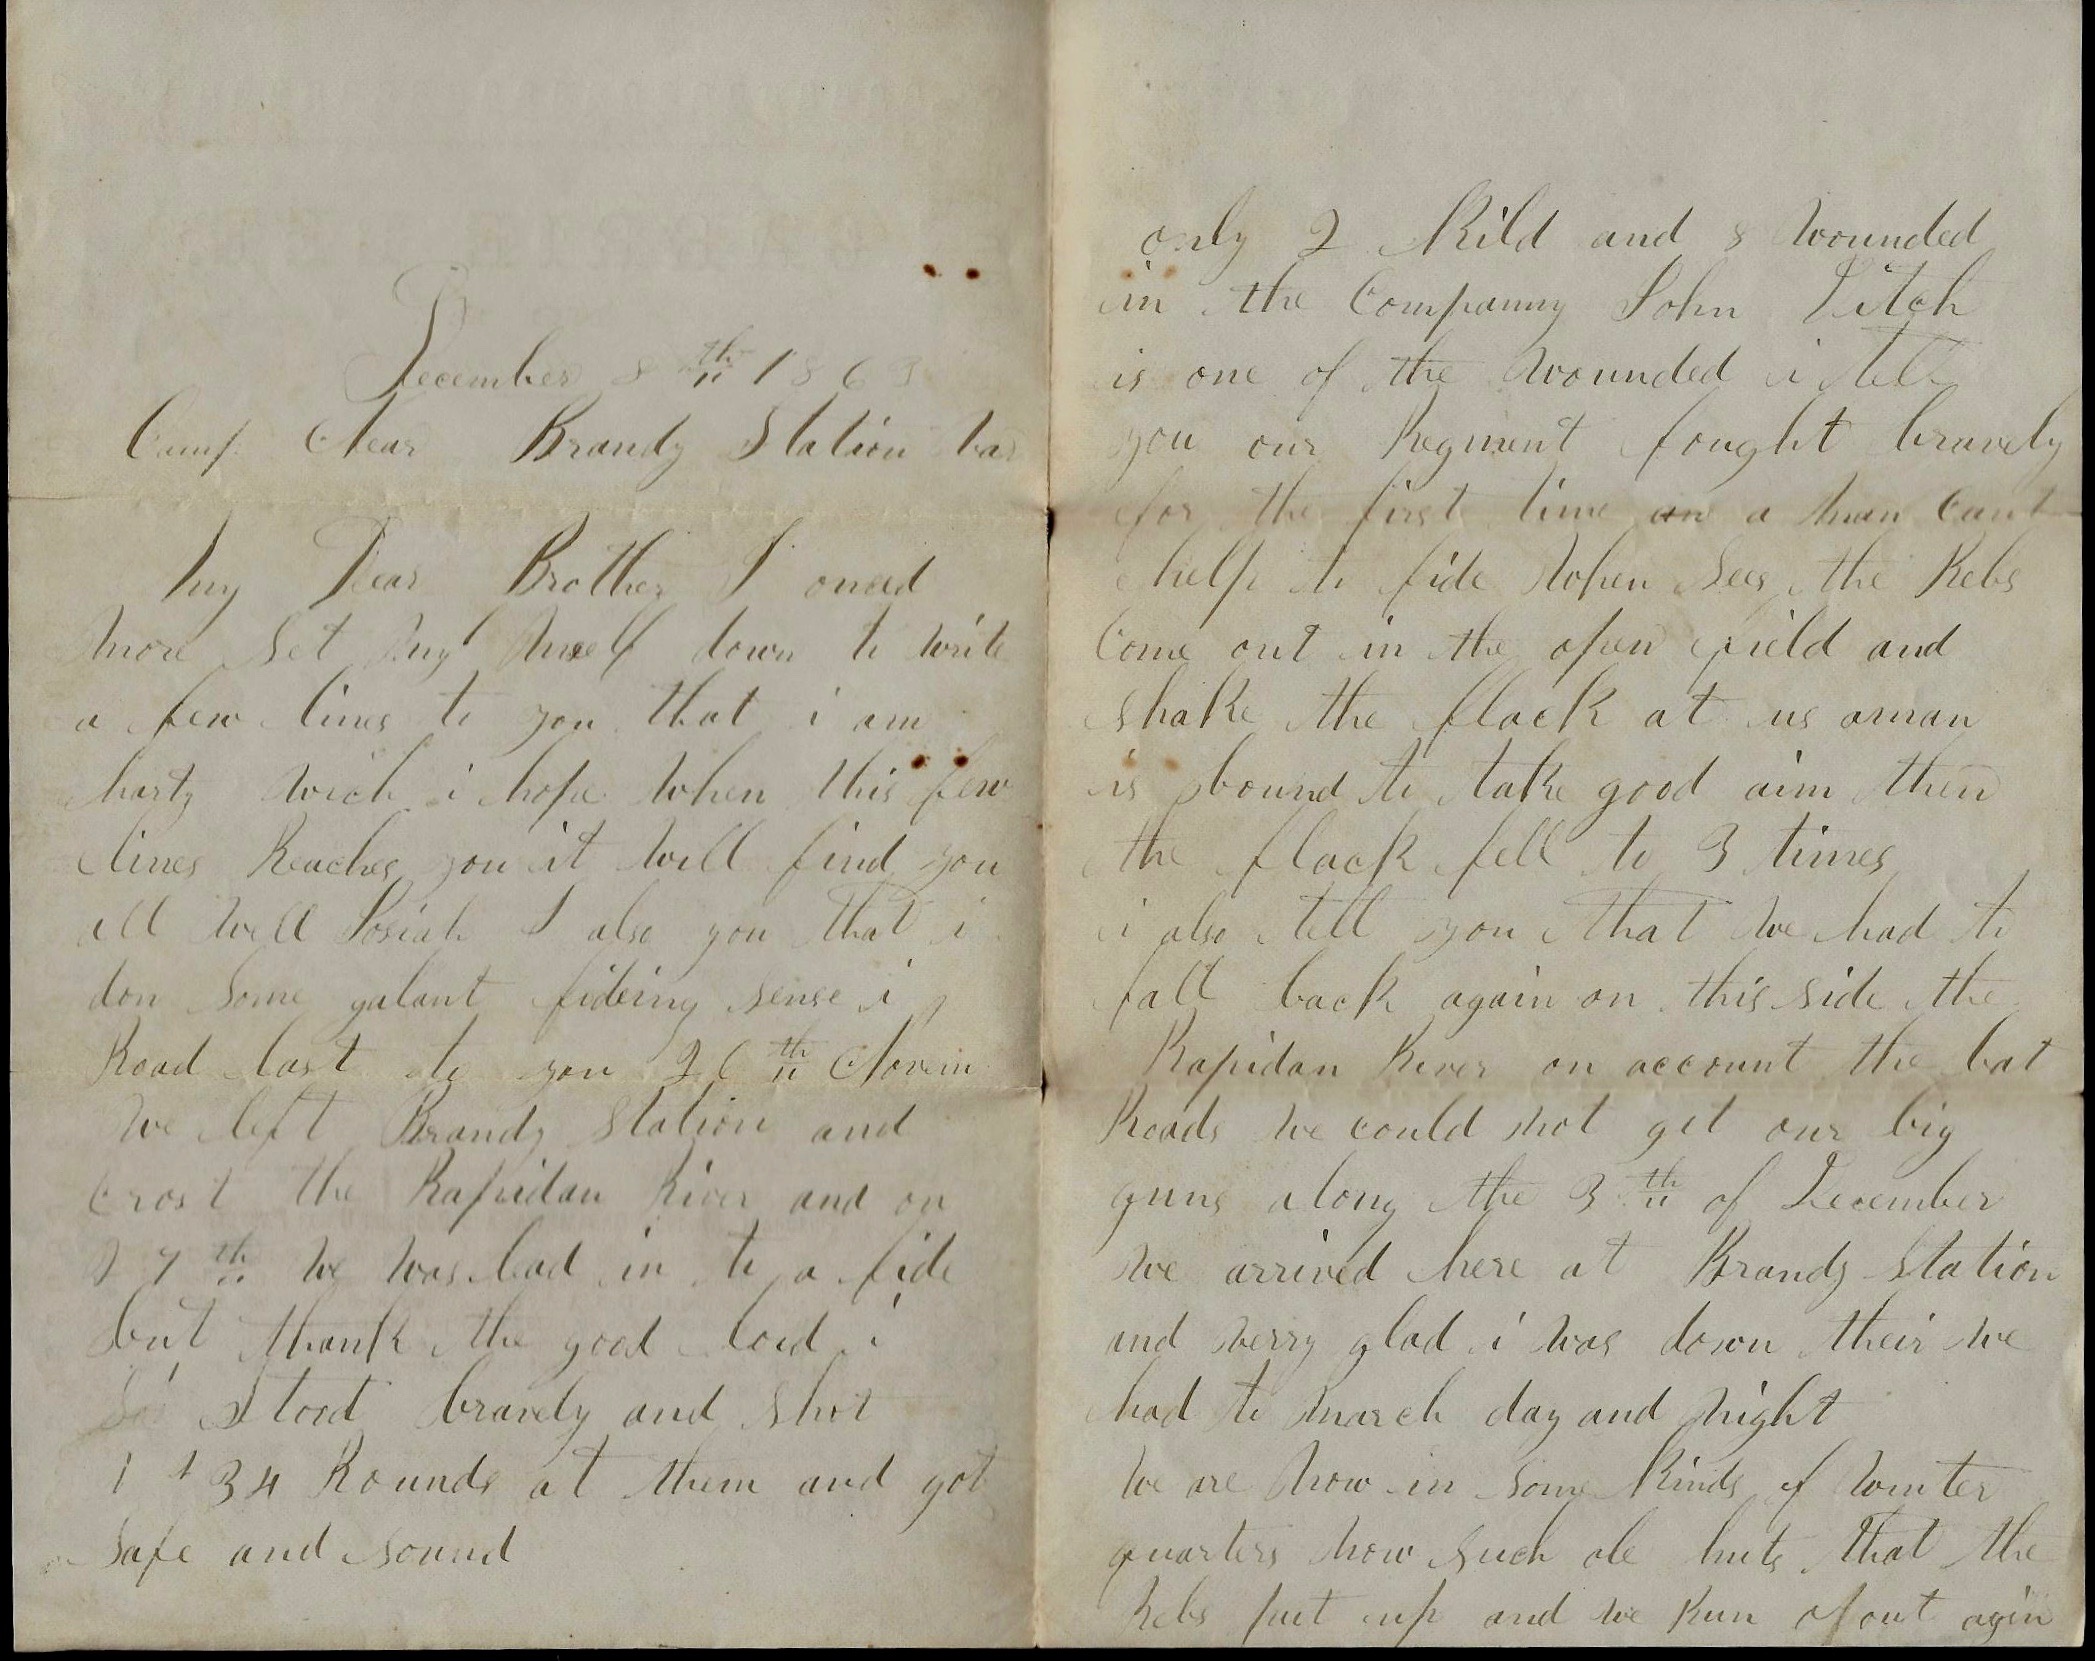 December 8th 1863
Camp Near Brandy Station Var
My Dear Brother I onced
more set my self down to write
a few lines to you that i am
harty wich i hope when this few
lines Reaches you it will find you
all well Josiah I also you that i
don some galant fideing sense i
Road last to you 26th Novem
we left Brandy Station and
crost the Rapidan River and on
27th we was lead in to a fide
but thank the good lord i
stood bravely and shot
34 Rounds at them and got
safe and sound
only 2 Kild and 8 wounded
in the Companny John Ditch
is one of the wounded i tell
you our Regment fought bravely
for the first time a man cant
help to fide when sees the Rebs
Come out in the open field and
shake the flack at us aman
is bound to take good aim then
the flack fell to 3 times
i also tell you that we had to
fall back again on this side the
Rapidan River on account the bat
Roads we could not get our big
guns along the 3th of December
we arrived here at Brandy Station
and verry glad i was down their we
had to march day and night
We are now in some kinds of winter
quarters now such ole huts that the
Rebs put up and we Run of out agin